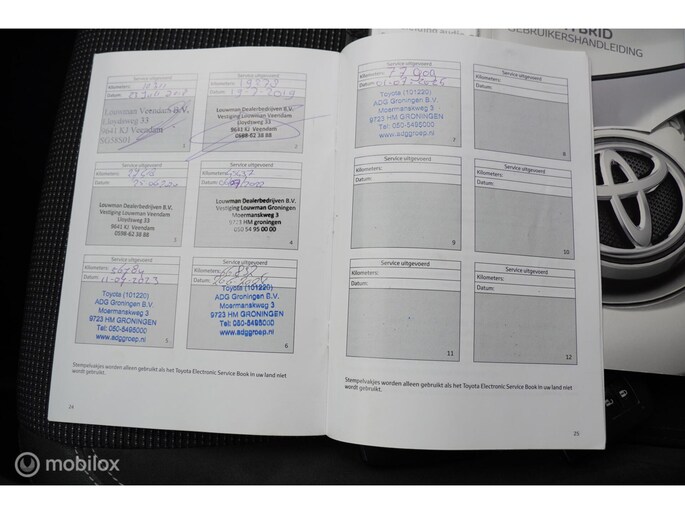 HYBRID
GEBRUIKERSHANDLEIDING
Service uitgevoerd
Kilometers:
Datum:
Louwman Veendam B.V.
Lloydsweg 33
9641 KJ Veendam
1
Service uitgevoerd
Kilometers:
Datum: 19-7-2019
Louwman Dealerbedrijven B.V.
Vestiging Louwman Veendam
Lloydsweg 33
9641 KJ Veendam
0598-62 38 88
2
Service uitgevoerd
Kilometers:
Datum:
Louwman Dealerbedrijven B.V.
Vestiging Louwman Veendam
9641 KJ Veendam
0598-62 38 88
3
Service uitgevoerd
Kilometers:
Datum:
Louwman Dealerbedrijven B.V.
Vestiging Louwman Groningen
Moermanskweg 3
9723 HM groningen
050 54 95 00 00
4
Service uitgevoerd
Kilometers: 56784
Datum: 11-07-2023
Toyota (101220)
ADG Groningen B.V.
Moermanskweg 3
9723 HM GRONINGEN
Tel: 050-5495000
www.adggroep.nl
5
Service uitgevoerd
Kilometers:
Datum:
Toyota (101220)
ADG Groningen B.V.
Moermanskweg 3
9723 HM GRONINGEN
Tel: 050-5495000
www.adggroep.nl
6
Stempelvakjes worden alleen gebruikt als het Toyota Electronic Service Book in uw land niet
wordt gebruikt.
24
Service uitgevoerd
Kilometers:
Datum:
Toyota (101220)
ADG Groningen B.V.
Moermanskweg 3
9723 HM GRONINGEN
Tel: 050-5495000
www.adggroep.nl
7
Service uitgevoerd
Kilometers:
Datum:
8
Service uitgevoerd
Kilometers:
Datum:
9
Service uitgevoerd
Kilometers:
Datum:
10
Service uitgevoerd
Kilometers:
Datum:
11
Service uitgevoerd
Kilometers:
Datum:
12
Stempelvakjes worden alleen gebruikt als het Toyota Electronic Service Book in uw land niet
wordt gebruikt.
25
mobilox